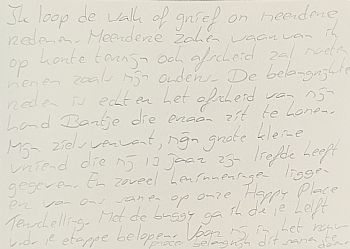 Ik loop de walk of grief om meerdere
redenen. Meerdere zaken waarvan ik
op korte termijn ook afscheid zal moeten
nemen zoals mijn ouders. De belangrijkste
reden is echter het afscheid van mijn
hond Bontje die eraan zit te komen.
Mijn zielsverwant, mijn grote kleine
vriend die mij 13 jaar zijn liefde heeft
gegeven. En zoveel herinneringen liggen
er van ons samen op onze Happy Place
Terschelling. Met de buggy ga ik de 1e helft
v.d. 1e etappe belopen. Voor mij is het
proces belangrijk dit aan